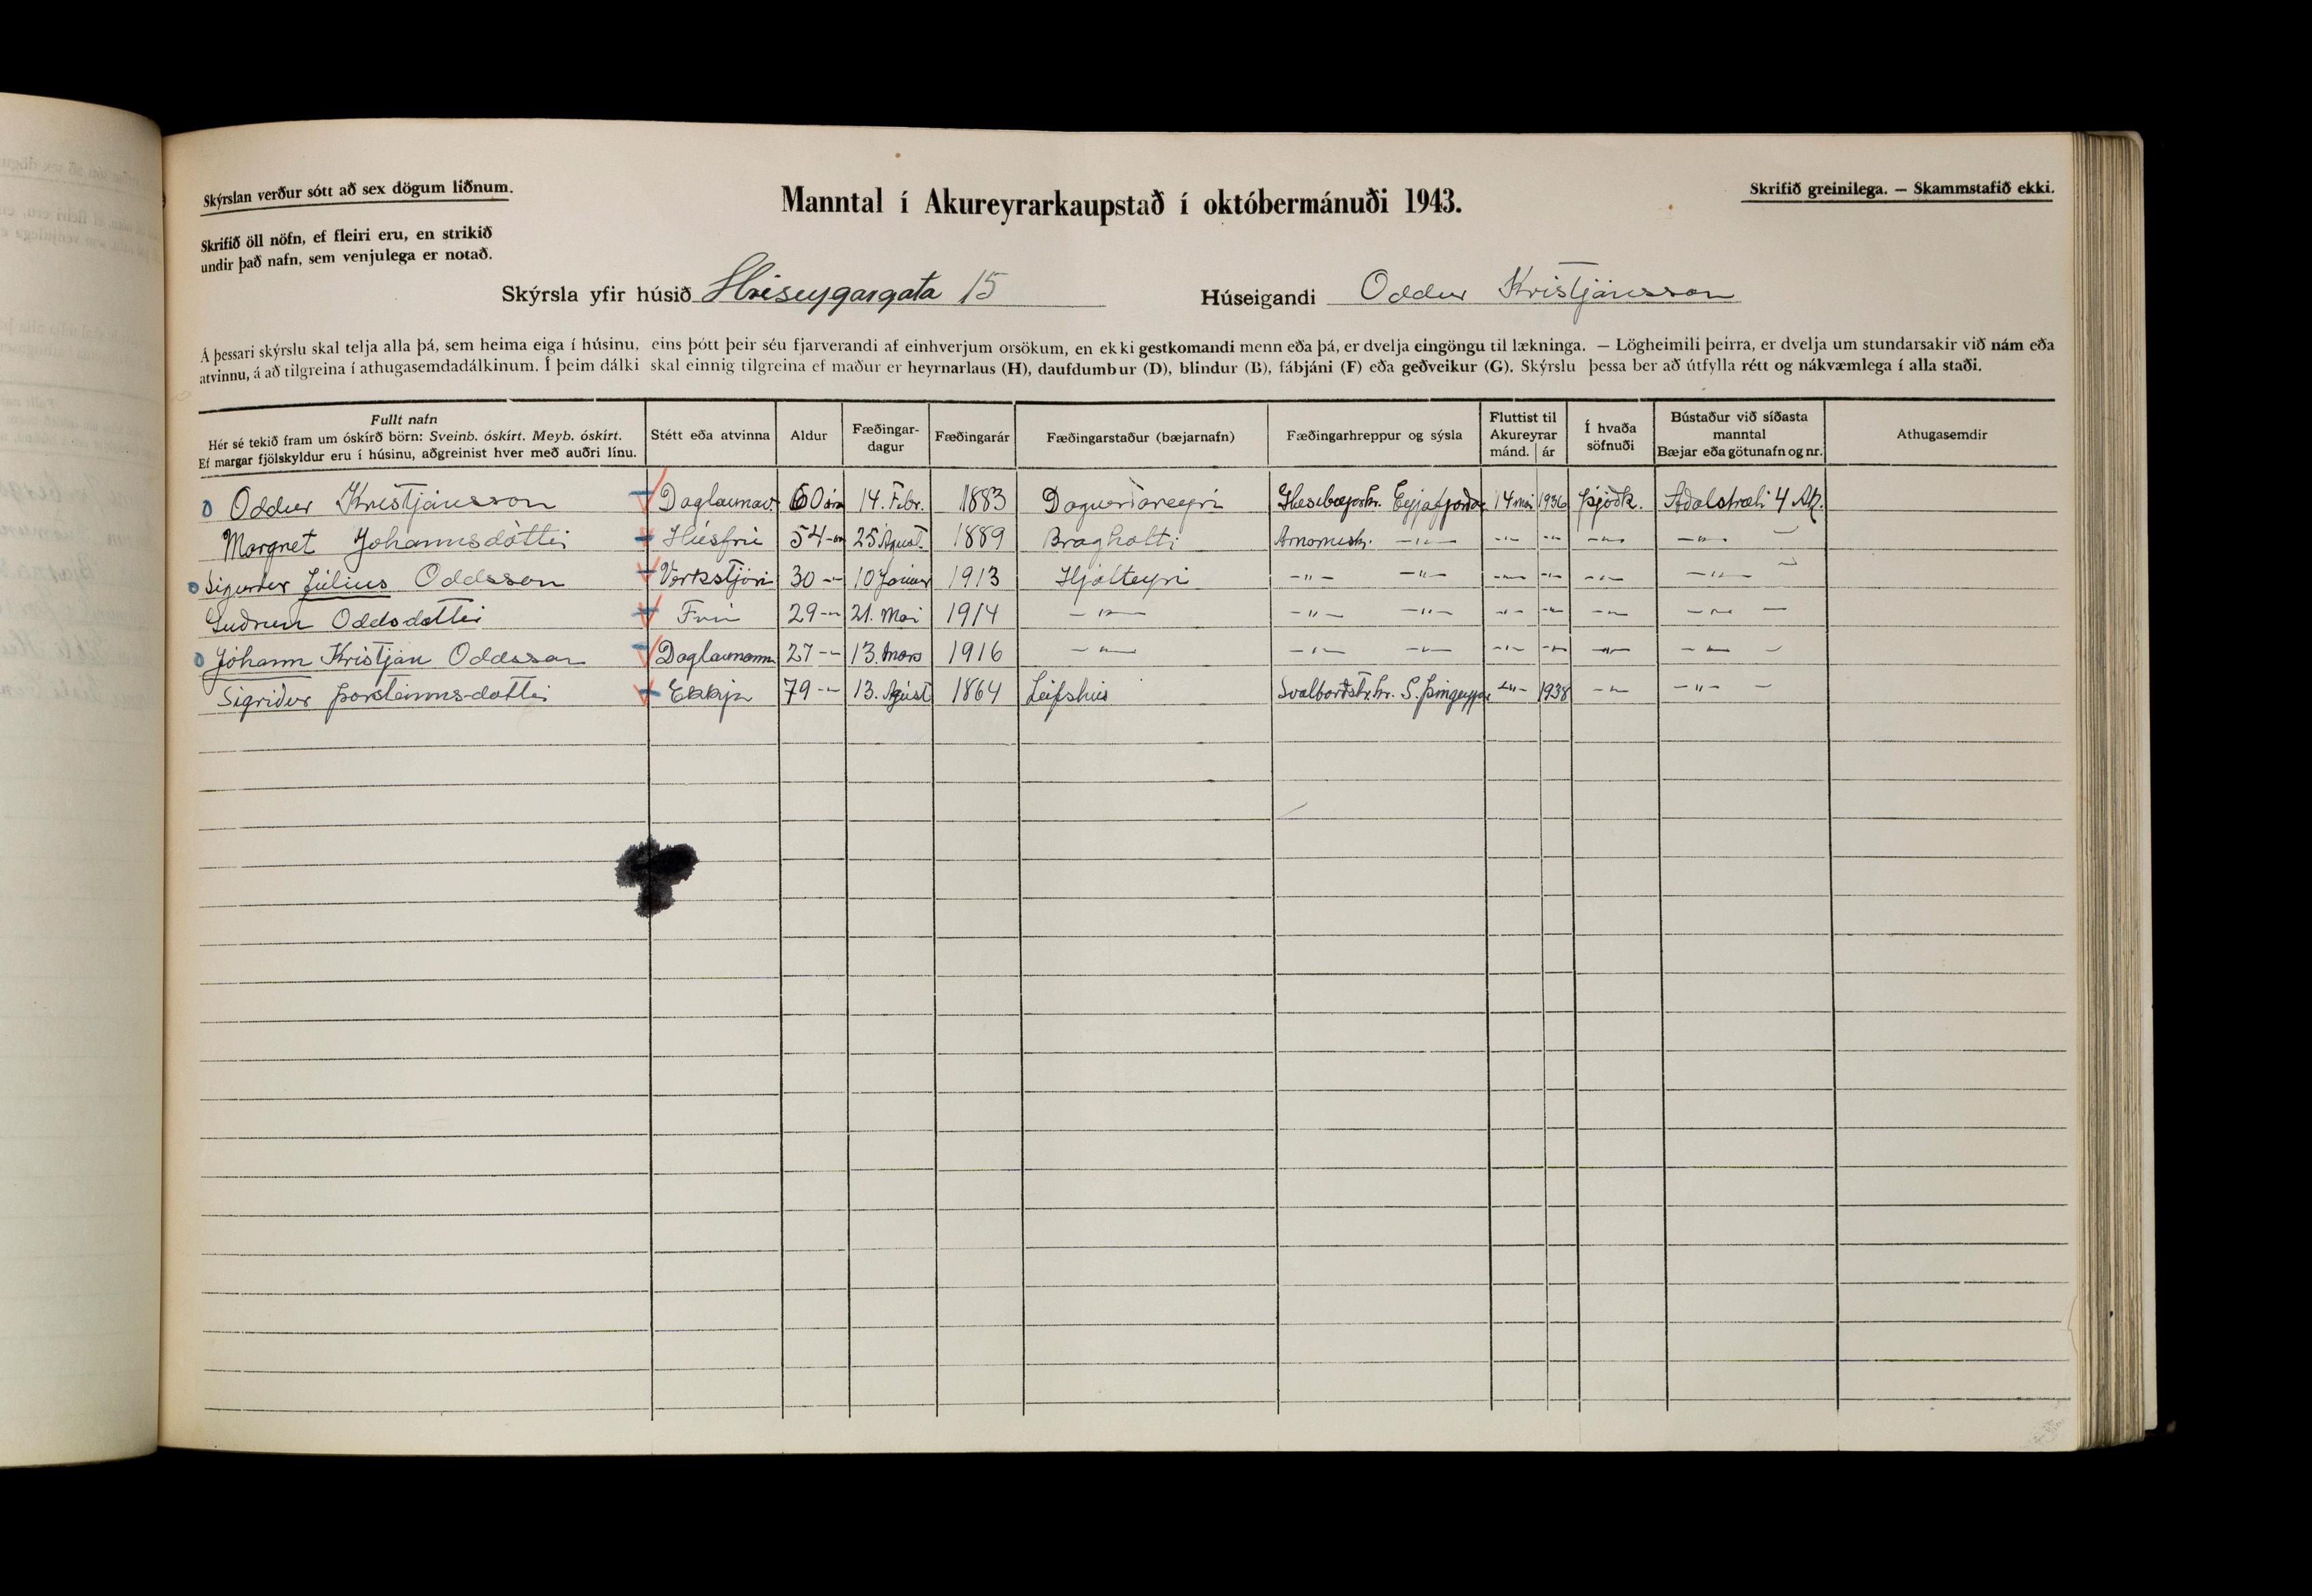 Skýrslan verður sótt að sex dögum liðnum.
Manntal í Akureyrarkaupstað í októbermánuði 1943.
Skrifið greinilega. — Skammstafið ekki.
Skrifið öll nöfn, ef fleiri eru, en strikið
undir það nafn, sem venjulega er notað.
Skýrsla yfir húsið Hríseygargata 15 Húseigandi Oddur Kristjánsson
Á þessari skýrslu skal telja alla þá, sem heima eiga í húsinu, eins þótt þeir séu fjarverandi af einhverjum orsökum, en ekki gestkomandi menn eða þá, er dvelja eingöngu til lækninga. — Lögheimili þeirra, er dvelja um stundarsakir við nám eða
atvinnu, á að tilgreina í athugasemdadálkinum. Í þeim dálki skal einnig tilgreina ef maður er heyrnarlaus (H), daufdumbur (D), blindur (B), fábjáni (F) eða geðveikur (G). Skýrslu þessa ber að útfylla rétt og nákvæmlega í alla staði.
Fullt nafn
Hér sé tekið fram um óskírð börn: Sveinb. óskírt. Meyb. óskírt.
Ef margar fjölskyldur eru í húsinu, aðgreinist hver með auðri línu.
Stétt eða atvinna
Aldur
Fæðingar-
dagur
Fæðingarár
Fæðingarstaður (bæjarnafn)
Fæðingarhreppur og sýsla
Fluttist til
Akureyrar
mánd. ár
Í hvaða
söfnuði
Bústaður við síðasta
manntal
Bæjar eða götunafn og nr.
Athugasemdir
Oddur Kristjánsson Daglaunam. 60 ára 14. Febr. 1883 Dagverdareyri Glæsibæjarhr. Eyjafjarða 14 mai 1936 Þjóðk. Aðalstræti 4 Ak.
Margret Johannsdóttir Húsfrú 54 -"- 25 Águst. 1889 Bragholti Arnarnesh. -"- -"- -"- -"- -"- -
Sigurður Júlíus Oddsson Verkstjóri 30 -"- 10 Janúar 1913 Hjalteyri -"- -"- -"- -"- -"- -"- -
Guðrun Oddsdottir Frú 29 -"- 21. Mai 1914 -"- -"- -"- -"- -"- -"- -"- -
Jóhann Kristján Oddsson Daglaunamn 27 -"- 13. Mars 1916 -"- -"- -"- -"- -"- -"- -"- -
Sigriður Þorsteinns-dottir Ekkja 79 -"- 13. Águst 1864 Leifshús Svalbarðstr.hr. S. Þingeyjar -"- 1938 -"- -"- -